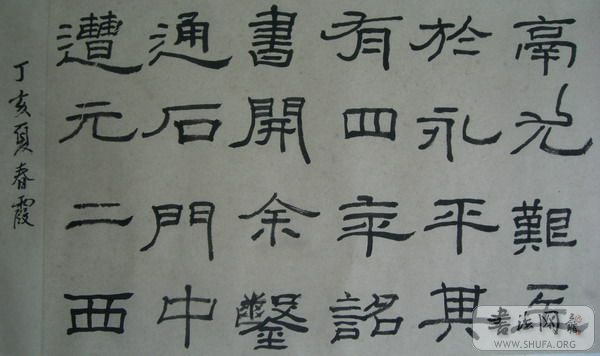 鬲尤艱至
於永平其
有四年詔
書開余鑿
通石門中
遭元二西
丁亥夏春霞
书法网
WWW.SHUFA.ORG